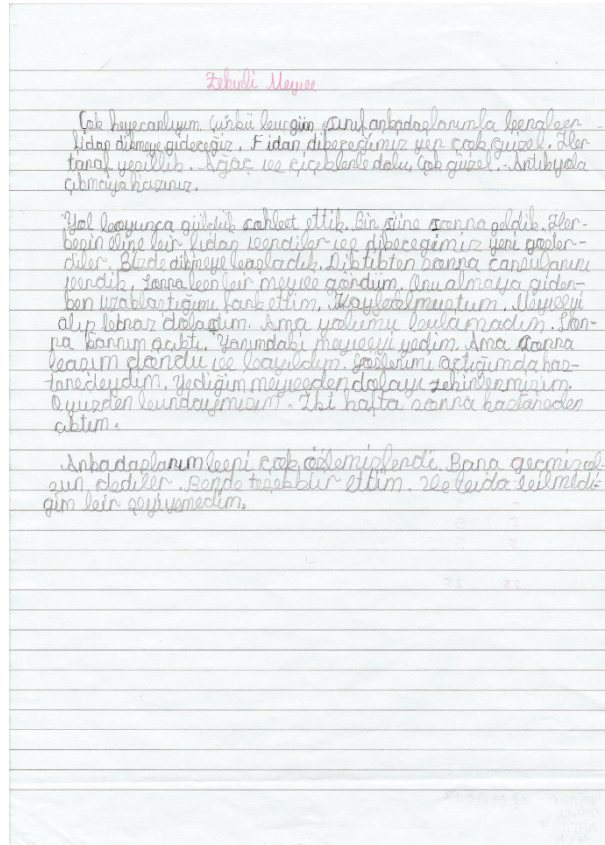 Zehirli Meyve
Çok heyecanlıyım. Çünkü bugün sınıf arkadaşlarımla beraber
fidan dikmeye gideceğiz. Fidan dikeceğimiz yer çok güzel. Her
taraf yeşillik. Ağaç ve çiçeklerle dolu, çok güzel. Artık yola
çıkmaya hazırız.
Yol boyunca güldük sohbet ettik. Bir süre sonra geldik. Her-
kesin eline bir fidan verdiler ve dikeceğimiz yeri göster-
diler. Bizde dikmeye başladık. Diktikten sonra cansularını
verdik. Sonra ben bir meyve gördüm. Onu almaya gider-
ken uzaklaştığımı fark ettim. Kaybolmuştum. Meyveyi
alıp biraz dolaştım. Ama yolumu bulamadım. Son-
ra karnım acıktı. Yanımdaki meyveyi yedim. Ama sonra
başım döndü ve bayıldım. Gözlerimi açtığımda has-
tanedeydim. Yediğim meyveden dolayı zehirlenmişim.
O yüzden burdaymışım. İki hafta sonra hastaneden
çıktım.
Arkadaşlarım beni çok özlemişlerdi. Bana geçmiş ol-
sun dediler. Bende teşekkür ettim. Ve bida bilmedi-
ğim bir şeyi yemedim.